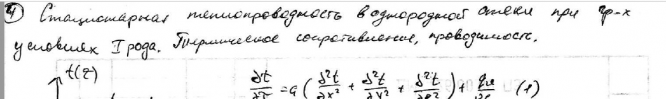 4) Стационарная теплопроводность в однородной стенке при гр-х
условиях I рода. Термическое сопротивление, проводимость.
t(τ) ∂t/∂τ = a (∂²t/∂x² + ∂²t/∂y² + ∂²t/∂z²) + qv/ (1)